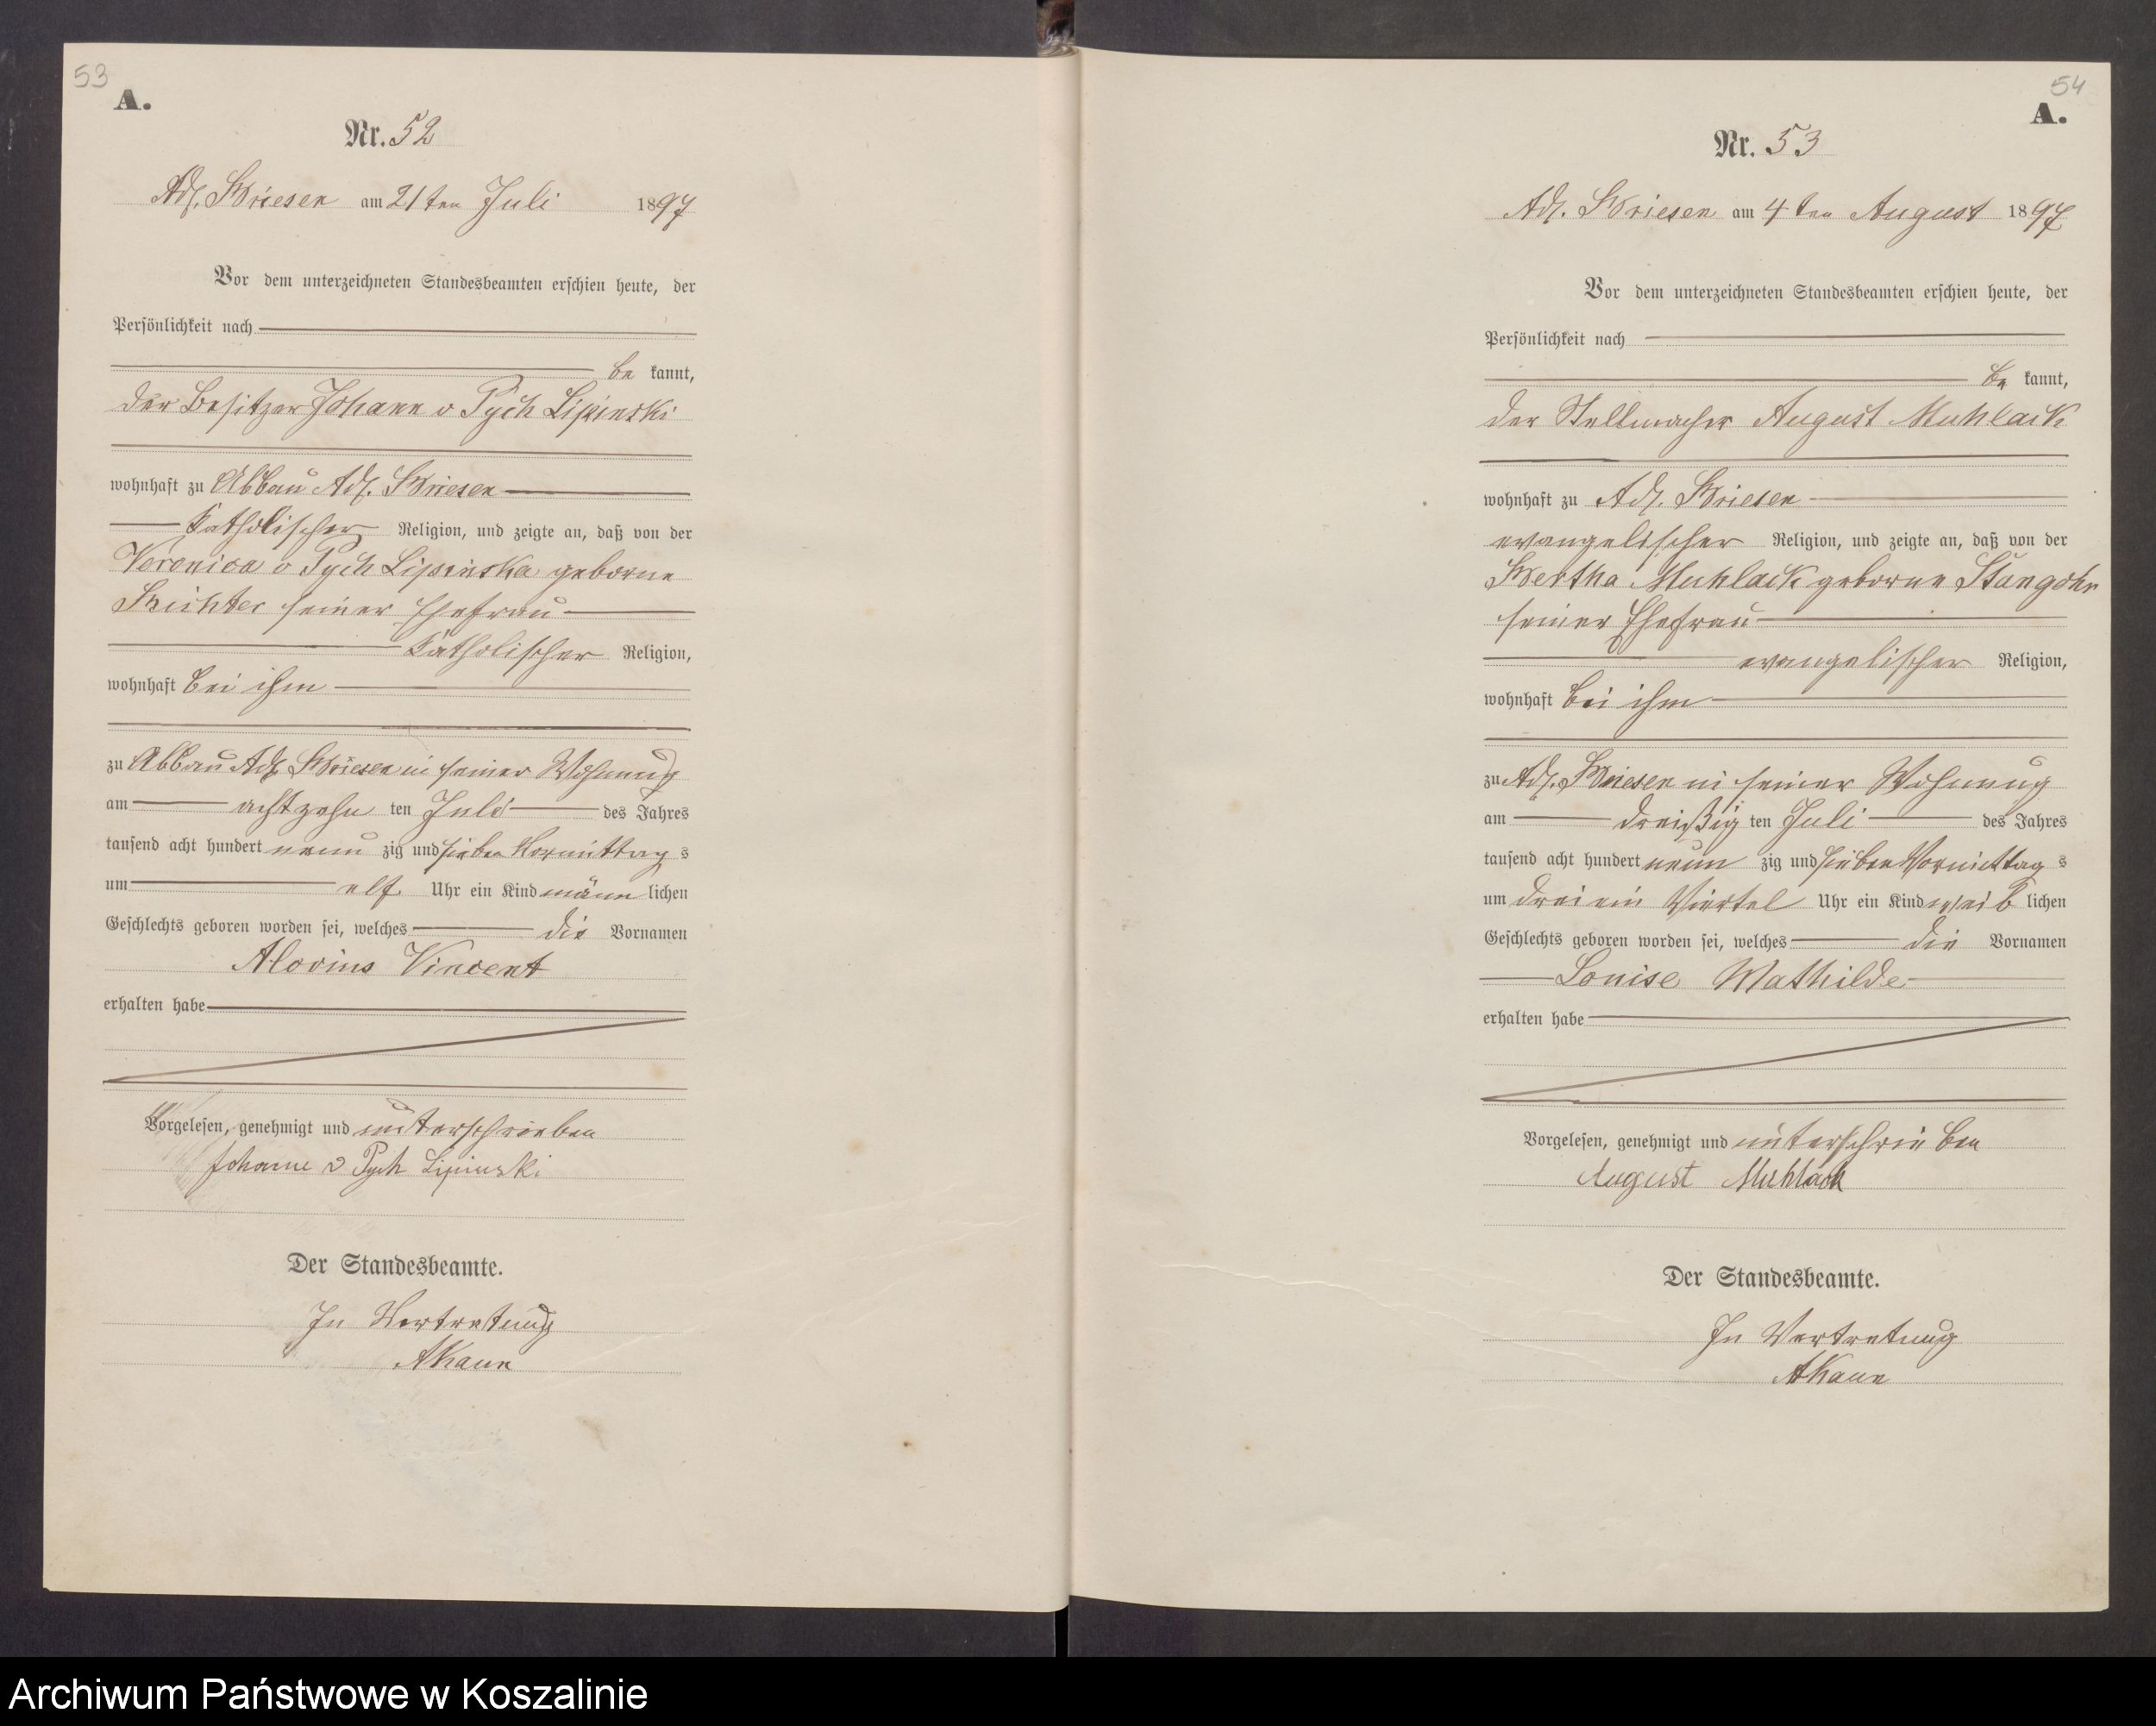 53
A.
Nr. 52
Adl. Briesen am 21ten Juli 1897
Vor dem unterzeichneten Standesbeamten erschien heute, der
Persönlichkeit nach
be kannt,
der Besitzer Johann v Pych Lipinski
wohnhaft zu Abbau Adl. Briesen
katholischer Religion, und zeigte an, daß von der
Veronica v Pych Lipinska geborne
Richter seiner Ehefrau
katholischer Religion,
wohnhaft bei ihm
zu Abbau Adl. Briesen in seiner Wohnung
am achtzehn ten Juli des Jahres
tausend acht hundert neun zig und sieben Vormittag s
um elf Uhr ein Kind männ lichen
Geschlechts geboren worden sei, welches die Vornamen
Alovius Vincent
erhalten habe
Vorgelesen, genehmigt und unterschrieben
Johann v Pych Lipinski
Der Standesbeamte.
In Vertretung
54
A.
Nr. 53
Adl. Briesen am 4ten August 1897
Vor dem unterzeichneten Standesbeamten erschien heute, der
Persönlichkeit nach
be kannt,
der Stellmacher August Muhlack
wohnhaft zu Adl. Briesen
evangelischer Religion, und zeigte an, daß von der
Bertha Muhlack geborne Stangohr
seiner Ehefrau
evangelischer Religion,
wohnhaft bei ihm
zu Adl. Briesen in seiner Wohnung
am dreißig ten Juli des Jahres
tausend acht hundert neun zig und sieben Vormittag s
um drei ein Viertel Uhr ein Kind weib lichen
Geschlechts geboren worden sei, welches die Vornamen
Louise Mathilde
erhalten habe
Vorgelesen, genehmigt und unterschrieben
August Muhlack
Der Standesbeamte.
In Vertretung
Archiwum Państwowe w Koszalinie